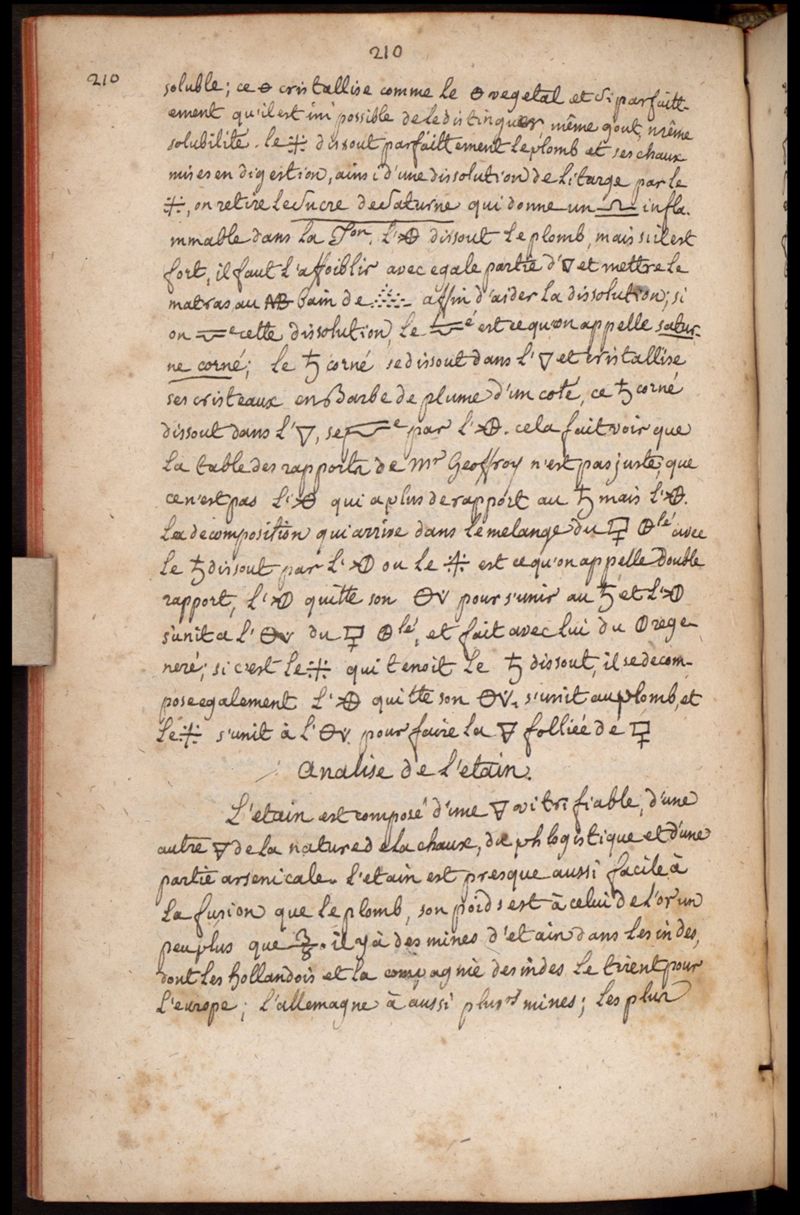 210
210
soluble; ce 🜔 cristallise comme le 🜔 vegetal et si parfaitt-
ement qu'il est im possible de le distinguer, même gout, même
solubilité. le 🜊 dissout parfaittement le plomb et ses chaux
mises en digestion, ainsi d'une dissolution de litarge par le
🜊, on retire le Sucre de Saturne qui donne un infla-
mmable dans la L'🜅 dissout le plomb, mais s'il est
fort, il faut l'affoiblir avec egale partie d'🜄 et mettre le
matras au bain de affin d'aider la dissolution; si
on cette dissolution, le est ce qu'on appelle satur-
ne corné; le ♄ corné se dissout dans l'🜄 et cristallise
ses cristeaux en Barbe de plume d'un coté, ce ♄ corné
dissout dans l'🜄, se par l' cela fait voir que
la table des rapports de Mr Geoffroy n'est pas juste, que
ce n'est pas l' qui a plus de rapport au ♄ mais l'
La decomposition qui arrive dans le melange du avec
le ♄ dissout par l' ou le 🜊 est ce qu'on appelle Double
rapport, l' quitte son pour s'unir au ♄ et l'
s'unit a l' du et fait avec lui du rege-
neré; si c'est le 🜊 qui tenoit le ♄ dissout, il se decom-
pose egalement l' quitte son s'unit au plomb, et
le 🜊 s'unit à l' pour faire la 🜃 folliée de
Analise de l'etain.
L'etain est composé d'une vitrifiable, d'une
autre de la nature de la chaux, du phlogistique et d'une
partie arsenicale. l'etain est presque aussi facile à
la fusion que le plomb, son poids est à celui de l'or un
peu plus que il y à des mines d'etain dans les indes,
dont les hollandois et la compagnie des indes le tirent pour
l'europe; l'allemagne à aussi plusrs mines; les plus